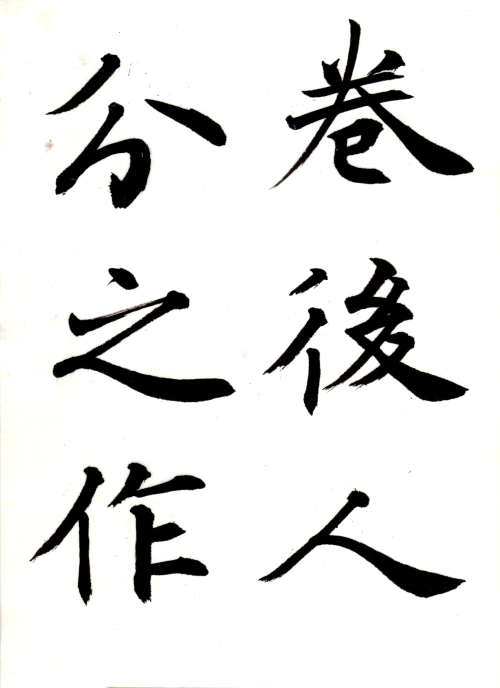 巻後人
分之作